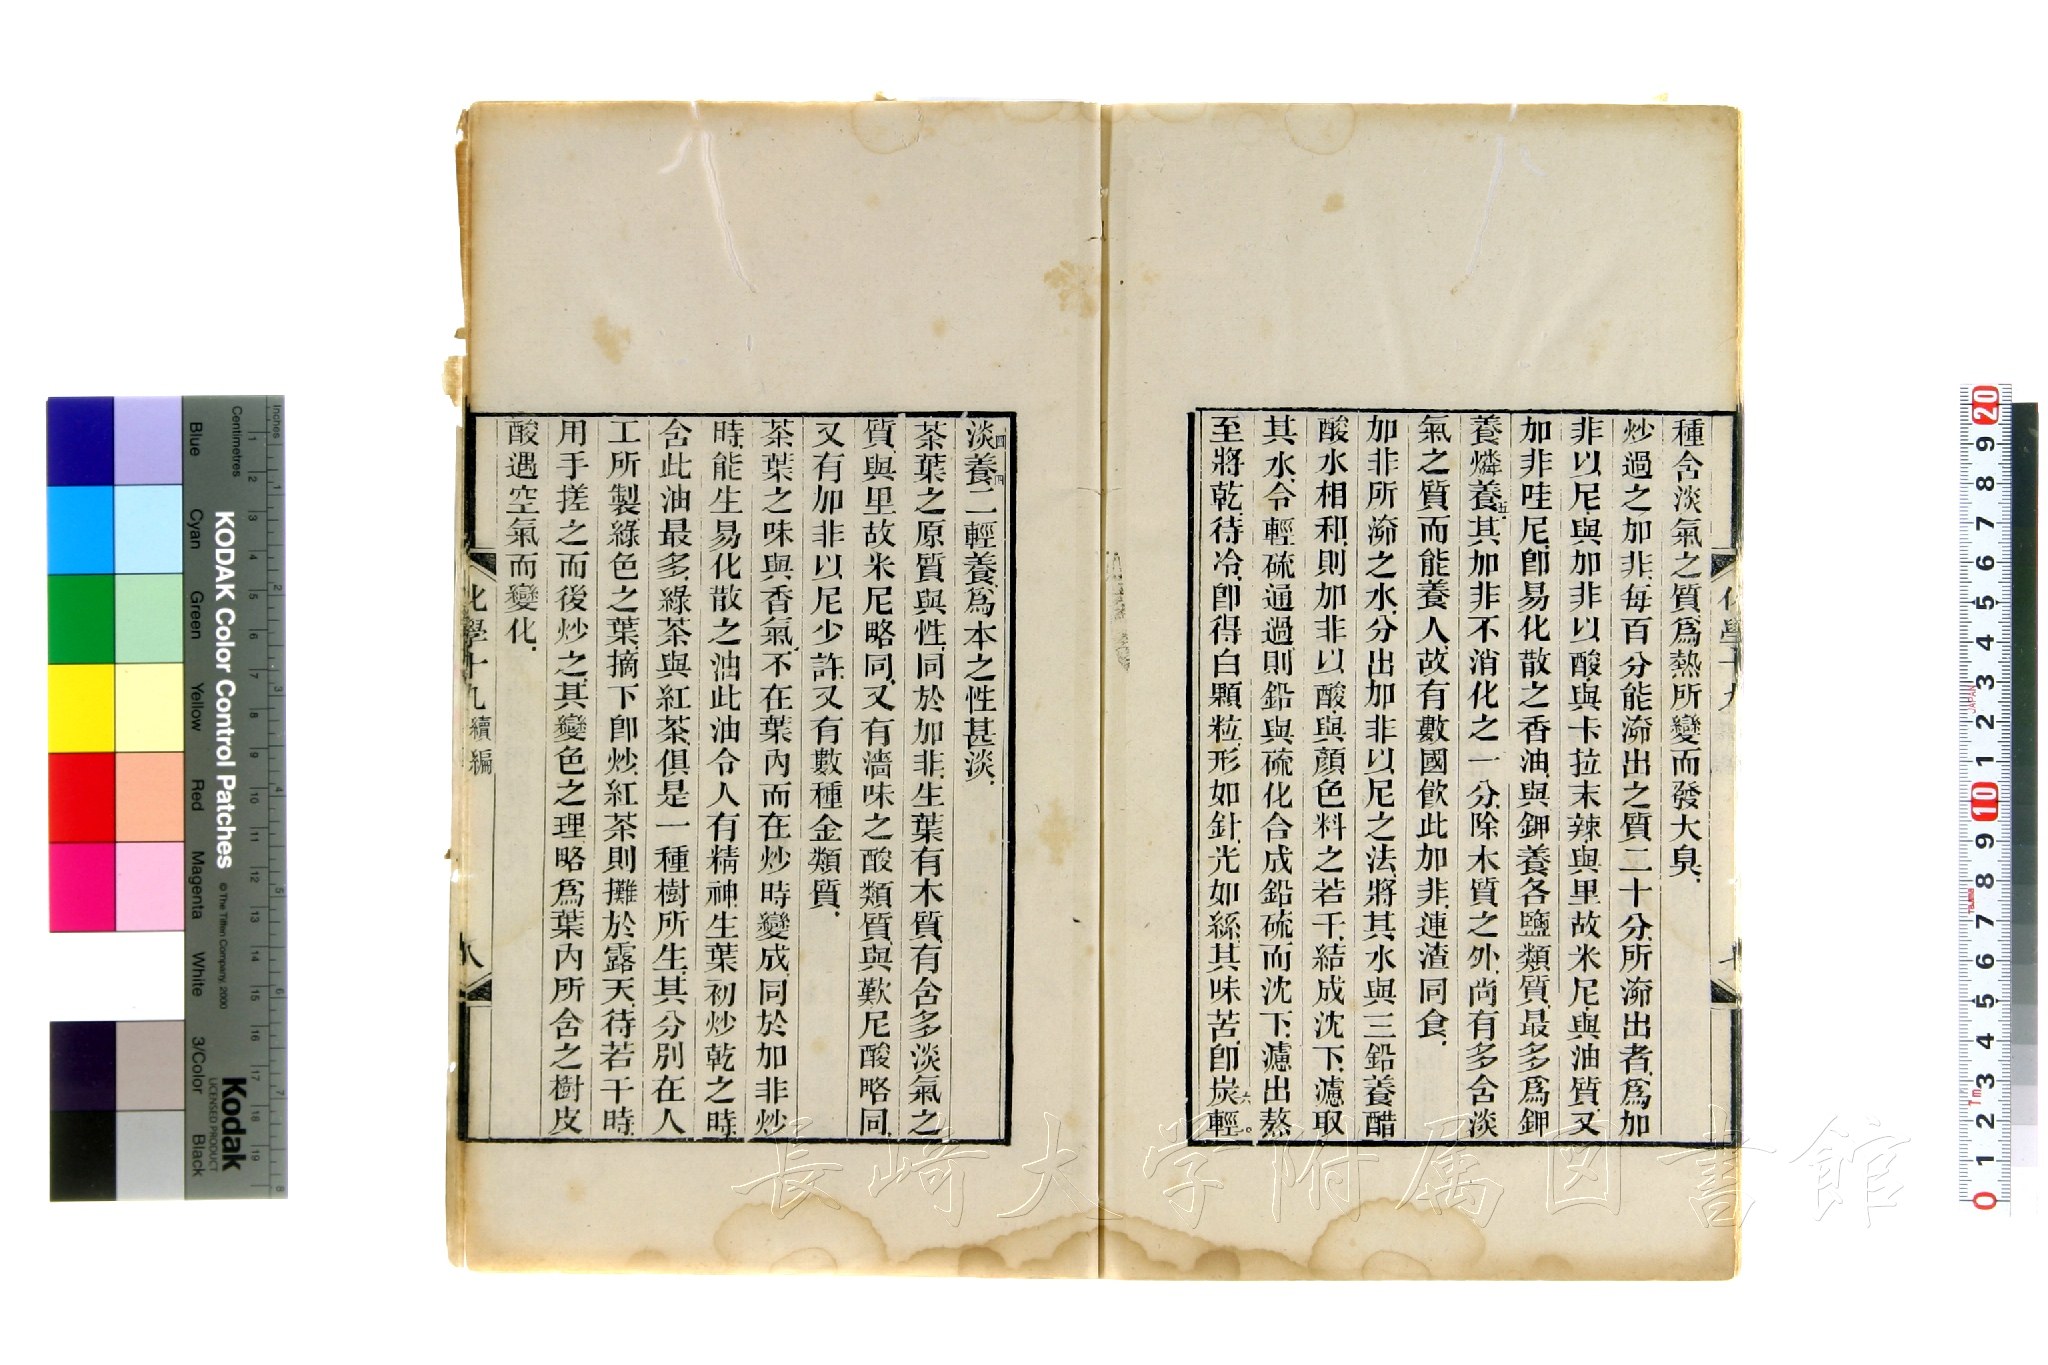 種含淡氣之質爲熱所變而發大臭
炒過之加非每百分能㴑出之質二十分所㴑出者爲加
非以尼與加非以酸與卡拉末辣與里故米尼與油質又
加非哇尼卽易化散之香油與鉀養各鹽類質最多爲鉀
養燐養五其加非不消化之一分除木質之外尚有多含淡
氣之質而能養人故有數國飲此加非連渣同食
加非所㴑之水分出加非以尼之法將其水與三鉛養醋
酸水相和則加非以酸與顏色料之若干結成沈下濾取
其水令輕硫通過則鉛與硫化合成鉛硫而沈下濾出熬
至將乾待冷卽得白顆粒形如針光如絲其味苦卽炭六輕
化學十九
淡四養四二輕養爲本之性甚淡
茶葉之原質與性同於加非生葉有木質有含多淡氣之
質與里故米尼略同又有濇味之酸類質與歎尼酸略同
又有加非以尼少許又有數種金類質
茶葉之味與香氣不在葉內而在炒時變成同於加非炒
時能生易化散之油此油令人有精神生葉初炒乾之時
含此油最多綠茶與紅茶俱是一種樹所生其分別在人
工所製綠色之葉摘下卽炒紅茶則攤於露天待若干時
用手搓之而後炒之其變色之理略爲葉內所含之樹皮
酸遇空氣而變化
化學十九 續編
八
inches
Centimetres
KODAK Color Control Patches
© The Tiffen Company, 2000
Kodak
LICENSED PRODUCT
Blue
Cyan
Green
Yellow
Red
Magenta
White
3/Color
Black
1 2 3 4 5 6 7 8 9 10 11 12 13 14 15 16 17 18 19
1 2 3 4 5 6 7 8
20 9 8 7 6 5 4 3 2 1 10 9 8 7 6 5 4 3 2 1 0
JAPAN
7m
長崎大学附属図書館